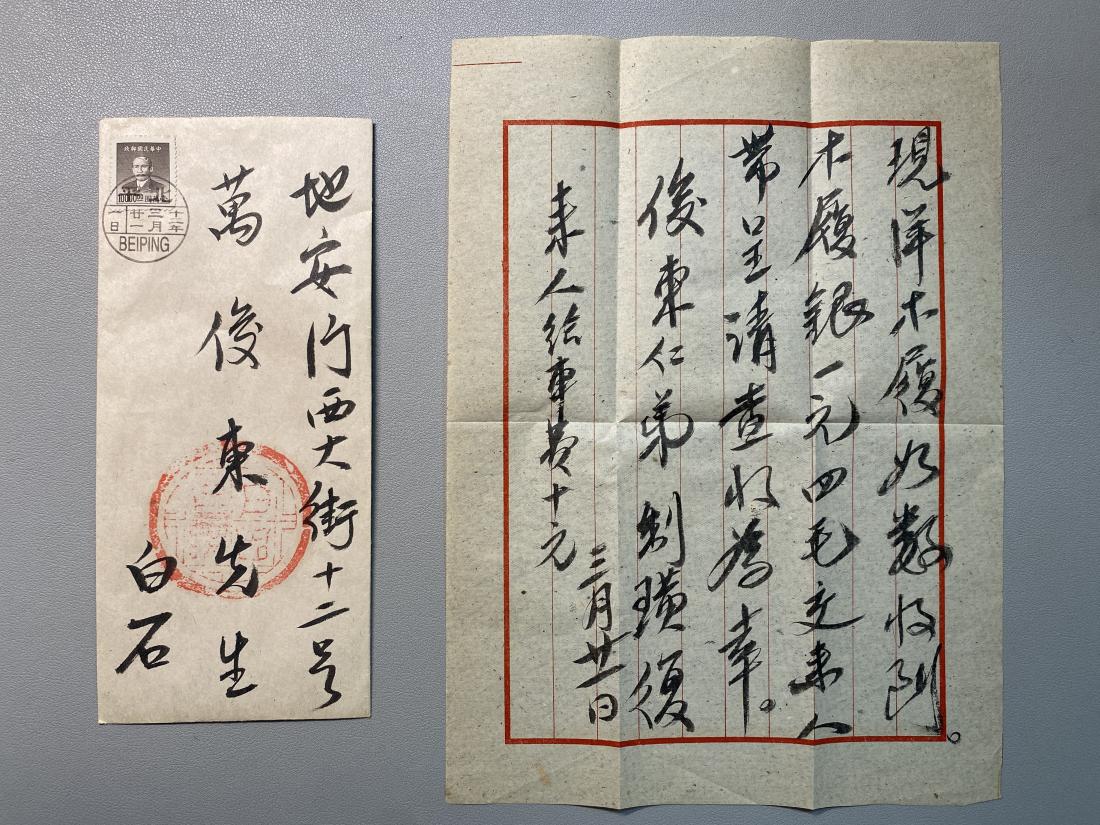 中華民國郵政
北平
十二年
三月
廿一日
BEIPING
地安门西大街十二号
萬俊東先生
白石
現洋木履如數收到。
木履銀一元四毛交来人
帶呈請查收為幸。
俊東仁弟 制璜復
三月廿一日
来人给車費十元